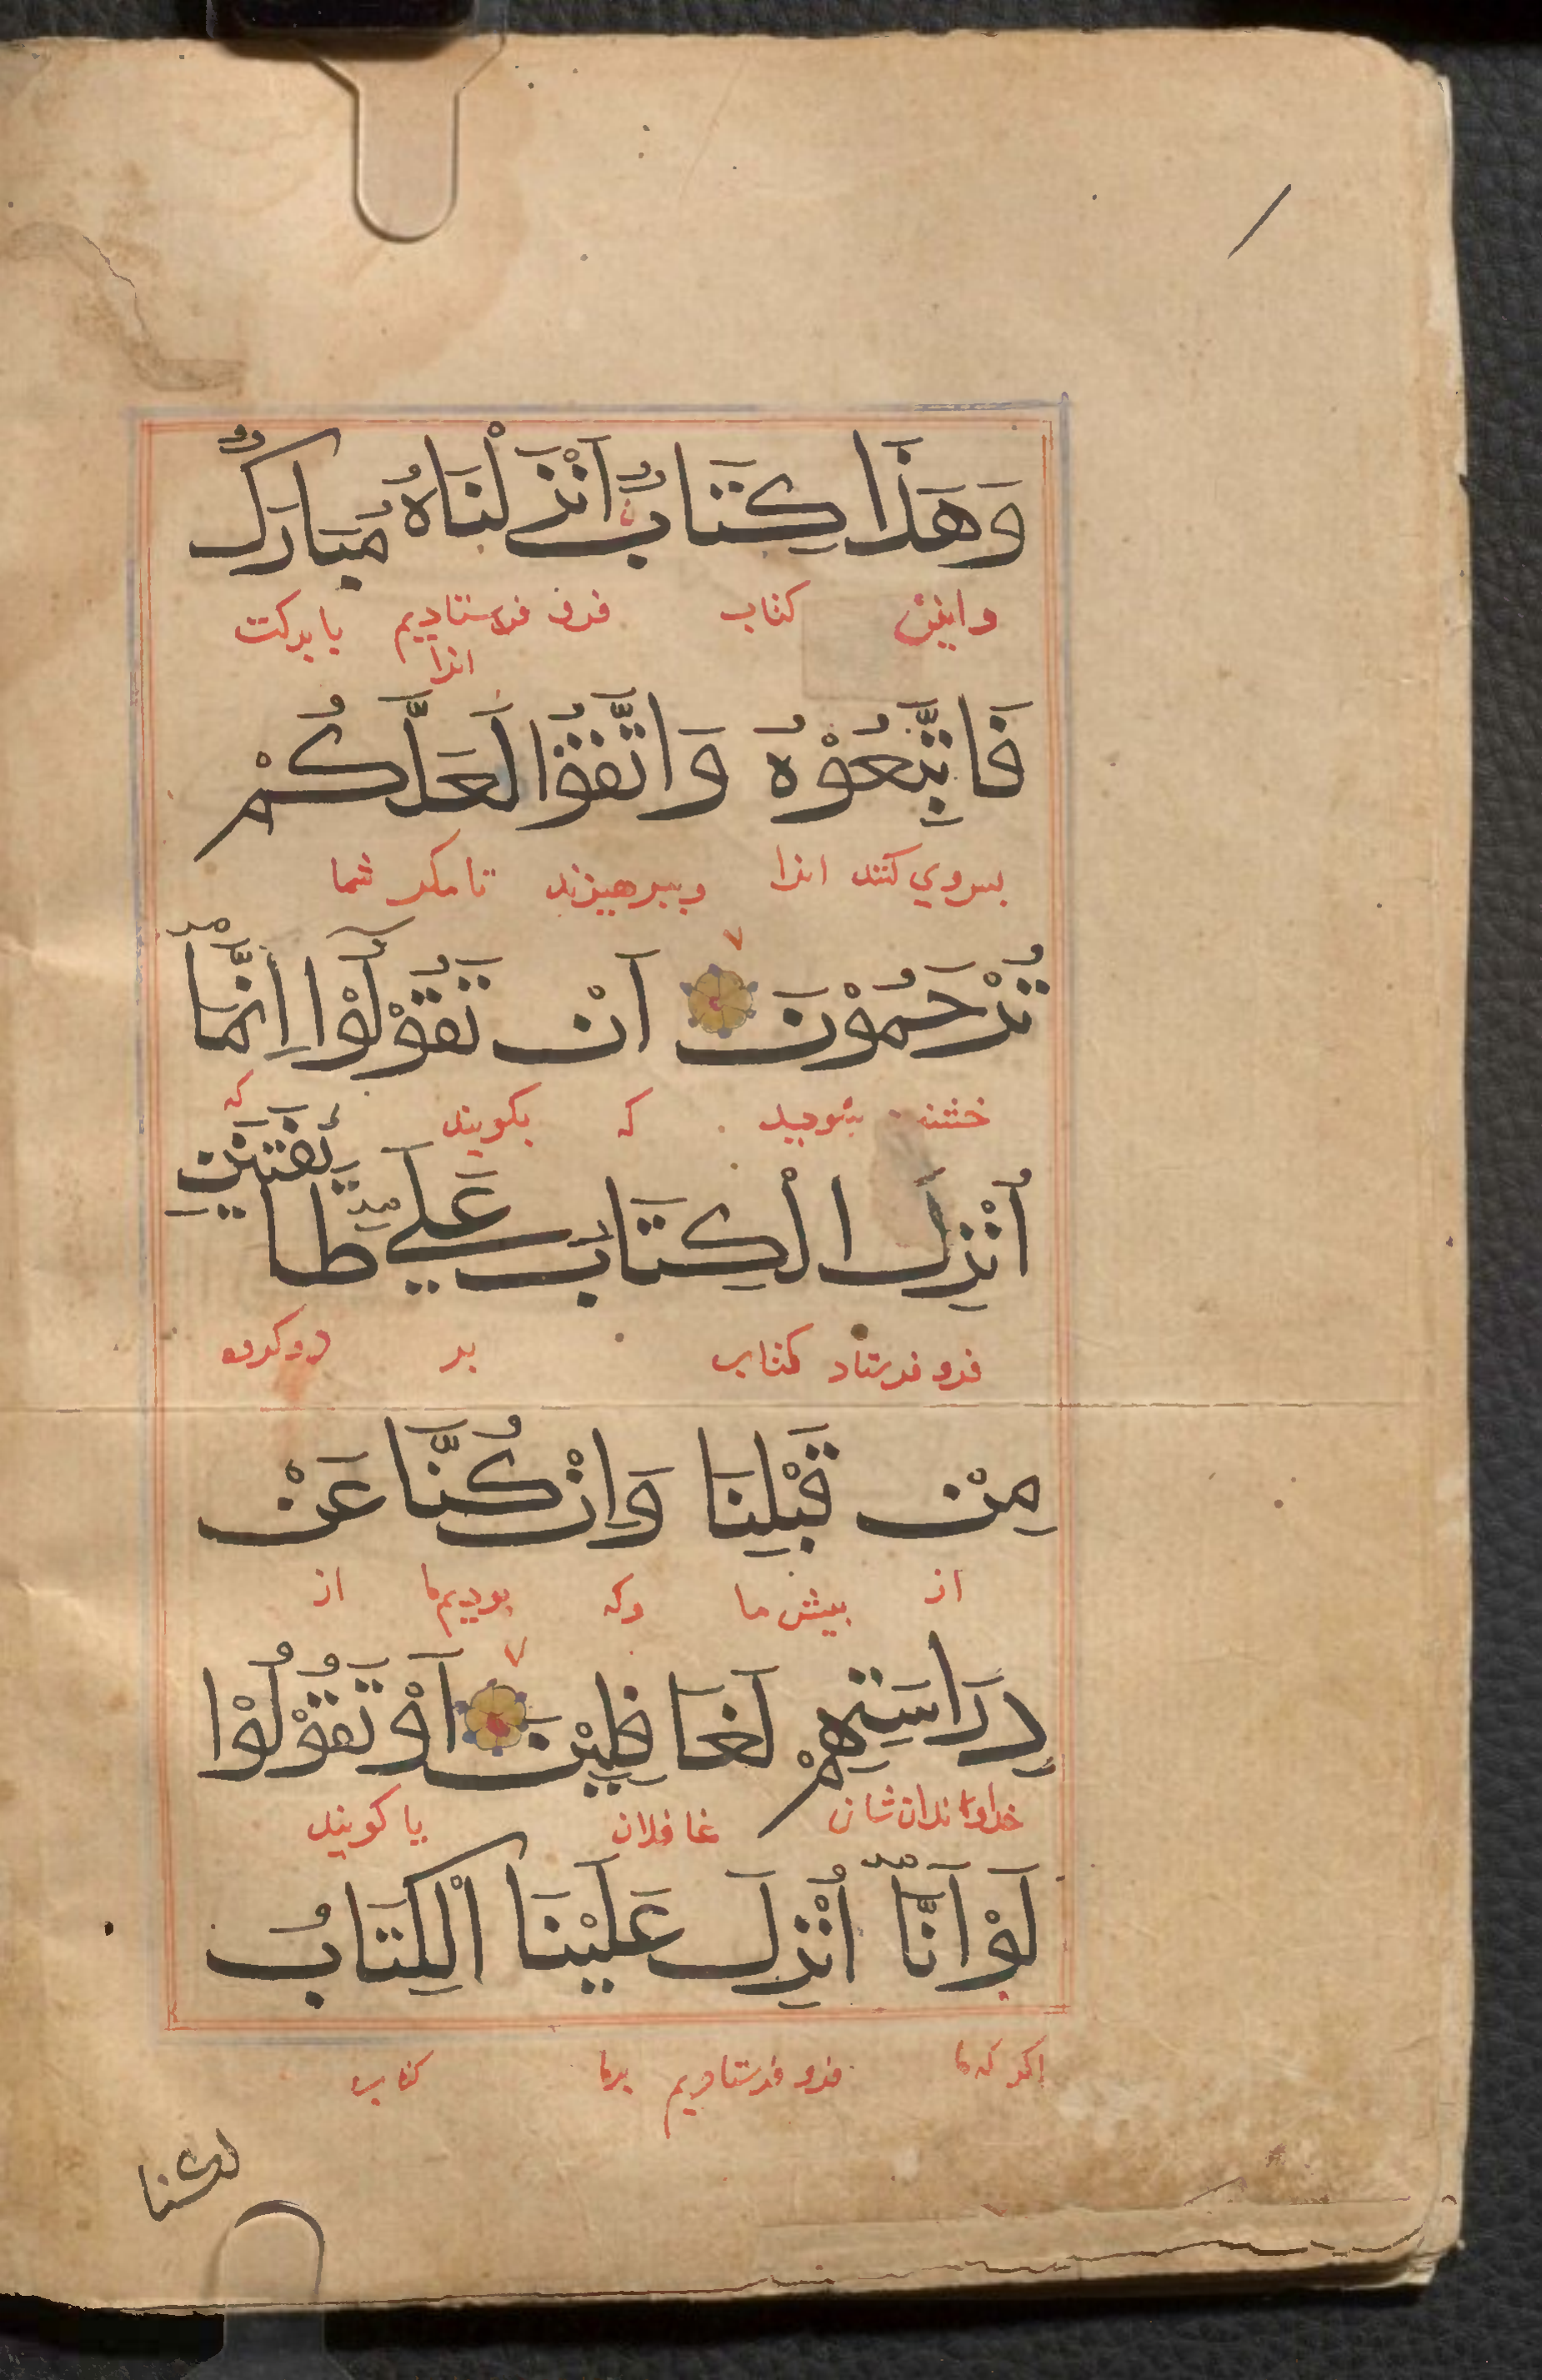 وَهَذَا كِتَابٌ اَنْزَلْنَاهُ مُبَارَكٌ
واین کتاب فرو فرستادیم بابرکت
انرا
فَاتَّبِعُوْهُ وَاتَّقُوْا لَعَلَّكُمْ
بیروي کنند انرا وببرهیزند تا مکر شما
تُرْحَمُوْنَ اَنْ تَقُوْلُوْا اِنَّمَا
که بکویند که
اُنْزِلَ الْكِتَابُ عَلَي طَائِفَتَيْنِ
فرو فرستاد کتاب بر دو کروه
مِنْ قَبْلِنَا وَاِنْ كُنَّا عَنْ
از بیش ما وکه بودیم ما از
دِرَاسَتِهِمْ لَغَافِلِيْنَ اَوْ تَقُوْلُوْا
غافلان یا کویند
لَوْ اَنَّا اُنْزِلَ عَلَيْنَا الْكِتَابُ
اکر که ما فرو فرستادیم برما کتاب
لكنا